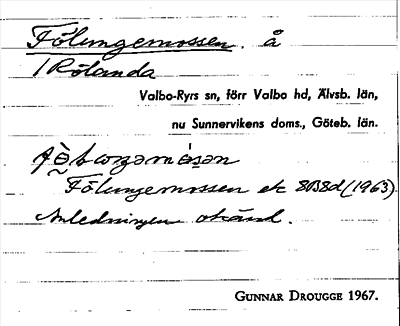 Fölungemossen. å
/ Rölanda
Valbo-Ryrs sn, förr Valbo hd, Älvsb. län,
nu Sunnervikens doms., Göteb. län.
Fölungemossen ek 8038d (1963).
Anledningen okänd.
GUNNAR DROUGGE 1967.